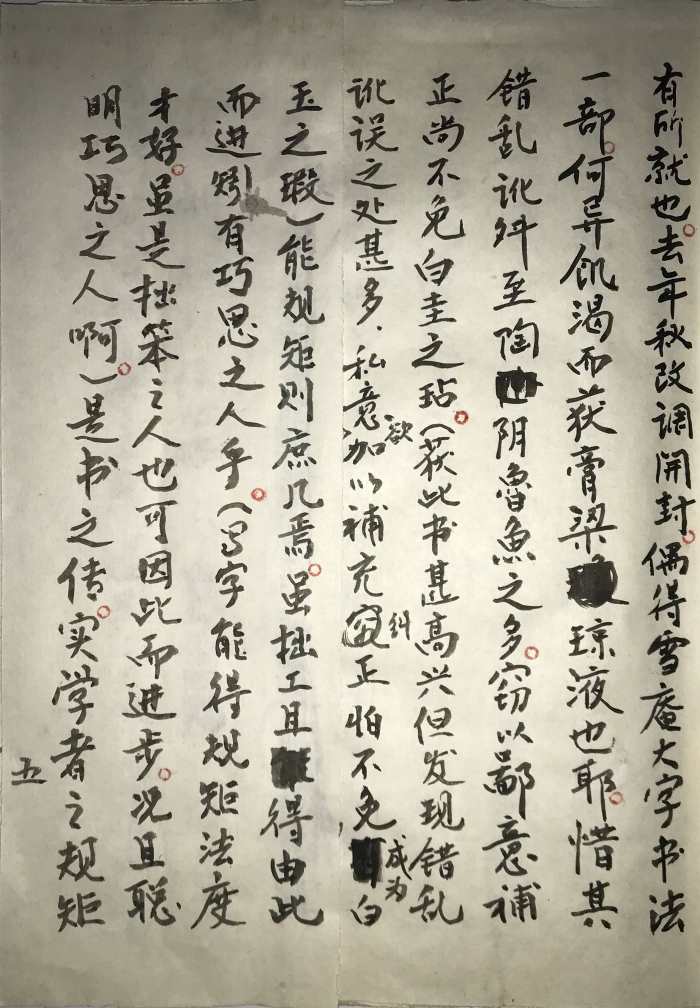 有所就也。去年秋改调开封。偶得雪庵大字书法
一部。何异饥渴而获膏梁琼液也耶。惜其
错乱讹舛至陶阴魯魚之多。窃以鄙意补
正尚不免白圭之玷。（获此书甚高兴但发现错乱
讹误之处甚多，私意欲加以补充纠正怕不免成为白
玉之瑕）能规矩则庶几焉。虽拙工且得由此
而进矧有巧思之人乎。（写字能得规矩法度
才好。虽是拙笨之人也可因此而进步。况且聪
明巧思之人啊。）是书之传。实学者之规矩
五